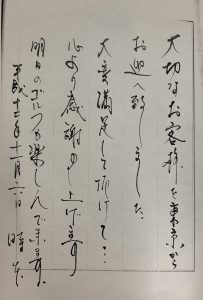 大切なお客様を東京から
お迎へ致しました。
大変満足して頂けて…
心より感謝申し上げます
明日のゴルフも楽しんで来ます。
平成十二年十一月六日